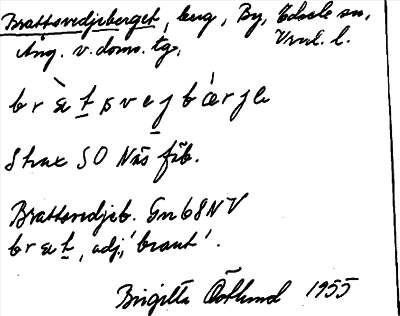 Brattsvedjeberget, berg, By, Edsele sn,
Ång. v. doms. tg, Vnrl. l.
bræt̠sve̠jbærje
Strax SO Näs fäb.
Brattsvedjeb. Gn 68 NV
bræt̠, adj, 'brant'.
Birgitta Östlund 1955